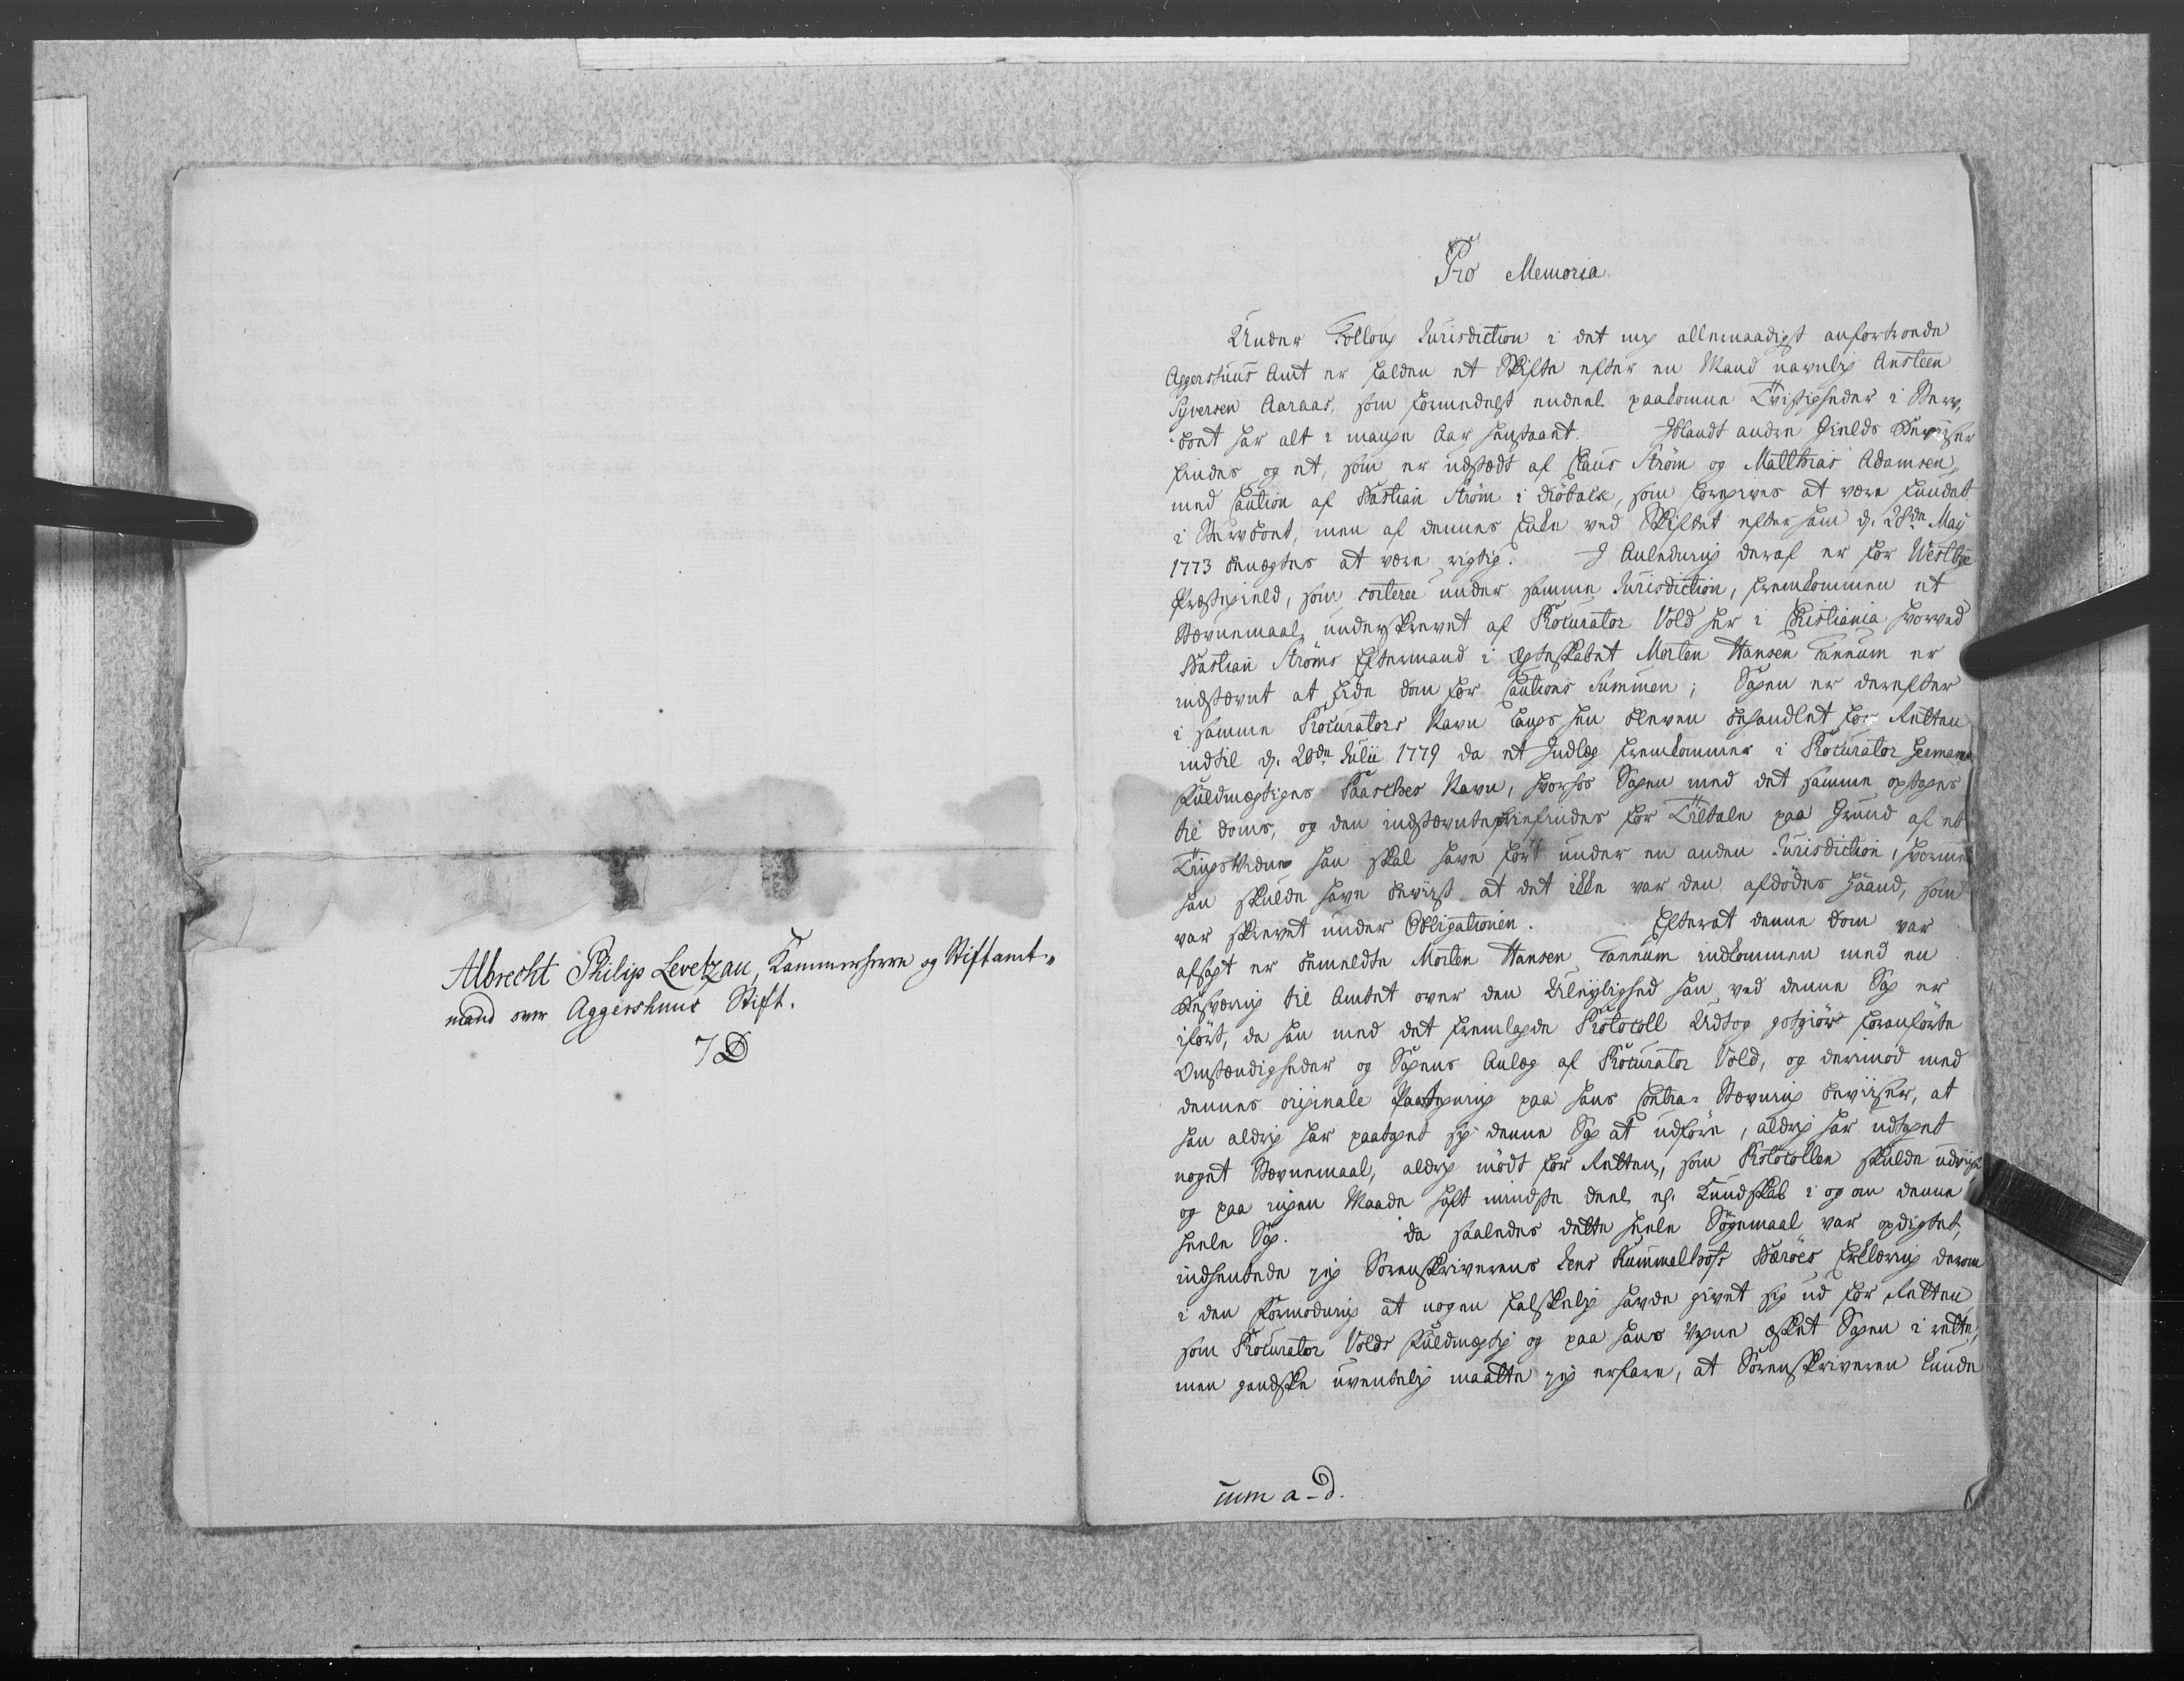 Albrecht Philip Levetzau, Kammerherre og Stiftamt-
mand over Aggershuus Stift.
7 D
Pro Memoria
Under Folloug Jurisdiction i det mig allernaadigst anfortroede
Aggershuus Amt er falden et Skifte efter en Mand navnlig Ansteen
Syversen Aaraas, som formedelst endeel paakomne Tvistigheder i Sterv-
boet har alt i mange Aar henstaaet. Iblandt andre Gields Beviiser
findes og et, som er udstædt af Claus Strøm og Matthias Adamsen,
med Caution af Bastian Strøm i Drøback, som foregives at være fundet
i Stervboet, men af dennes Enke ved Skiftet efter ham d. 28de Maij
1773 benægtes at være rigtig. I Anledning deraf er for Westbye
Præstegield, som corterer under samme Jurisdiction, fremkommen et
Stævnemaal, underskrevet af Procurator Vold her i Christiania hvorved
Bastian Strøms Eftermand i Ægteskabet Morten Hansen Tannum er
indstævnt at lide Dom for Cautions Summen; Sagen er derefter
i samme Procurators Navn langs hen bleven behandlet for Retten
indtil d. 20de Julii 1779 da et Indlæg fremkommer i Procurator
Fuldmægtiges Baasches Navn, hvorhos Sagen med det samme optages
til Doms, og den indstævnte friefindes for Tiltale paa Grund af et
Tings Vidne han skal have ført under en anden Jurisdiction, hvormed
han skulde have beviist at det ikke var den afdødes Haand, som
var skrevet under Obligationen. Efterat denne Dom var
afsagt er bemeldte Morten Hansen Tannum indkommen med en
Besværing til Amtet over den Uleylighed han ved denne Sag er
iført, da han med det fremlagde Protocoll Udtog gotgiør foranførte
Omstændigheder og Sagens Anlæg af Procurator Vold, og derimod med
dennes originale Paategning paa hans Contra-Stævning beviiser, at
han aldrig har paataget sig denne Sag at udføre, aldrig har udtaget
noget Stævnemaal, aldrig mødt for Retten, som Protocollen skulde udviise
og paa ingen Maade haft mindste Deel el. Kundskab i og om denne
heele Sag. Da saaledes dette heele Søgemaal var opdigtet,
indhentede jeg Sorenskriverens Jens Rummelhofs Bærøes Erklæring derom
i den Formodning at nogen falskelig havde givet sig ud for Retten
som Procurator Volds Fuldmægtig og paa hans Vegne æsket Sagen i rette,
men gandske uventelig maatte jeg erfare, at Sorenskriveren kunde
cum a-d.